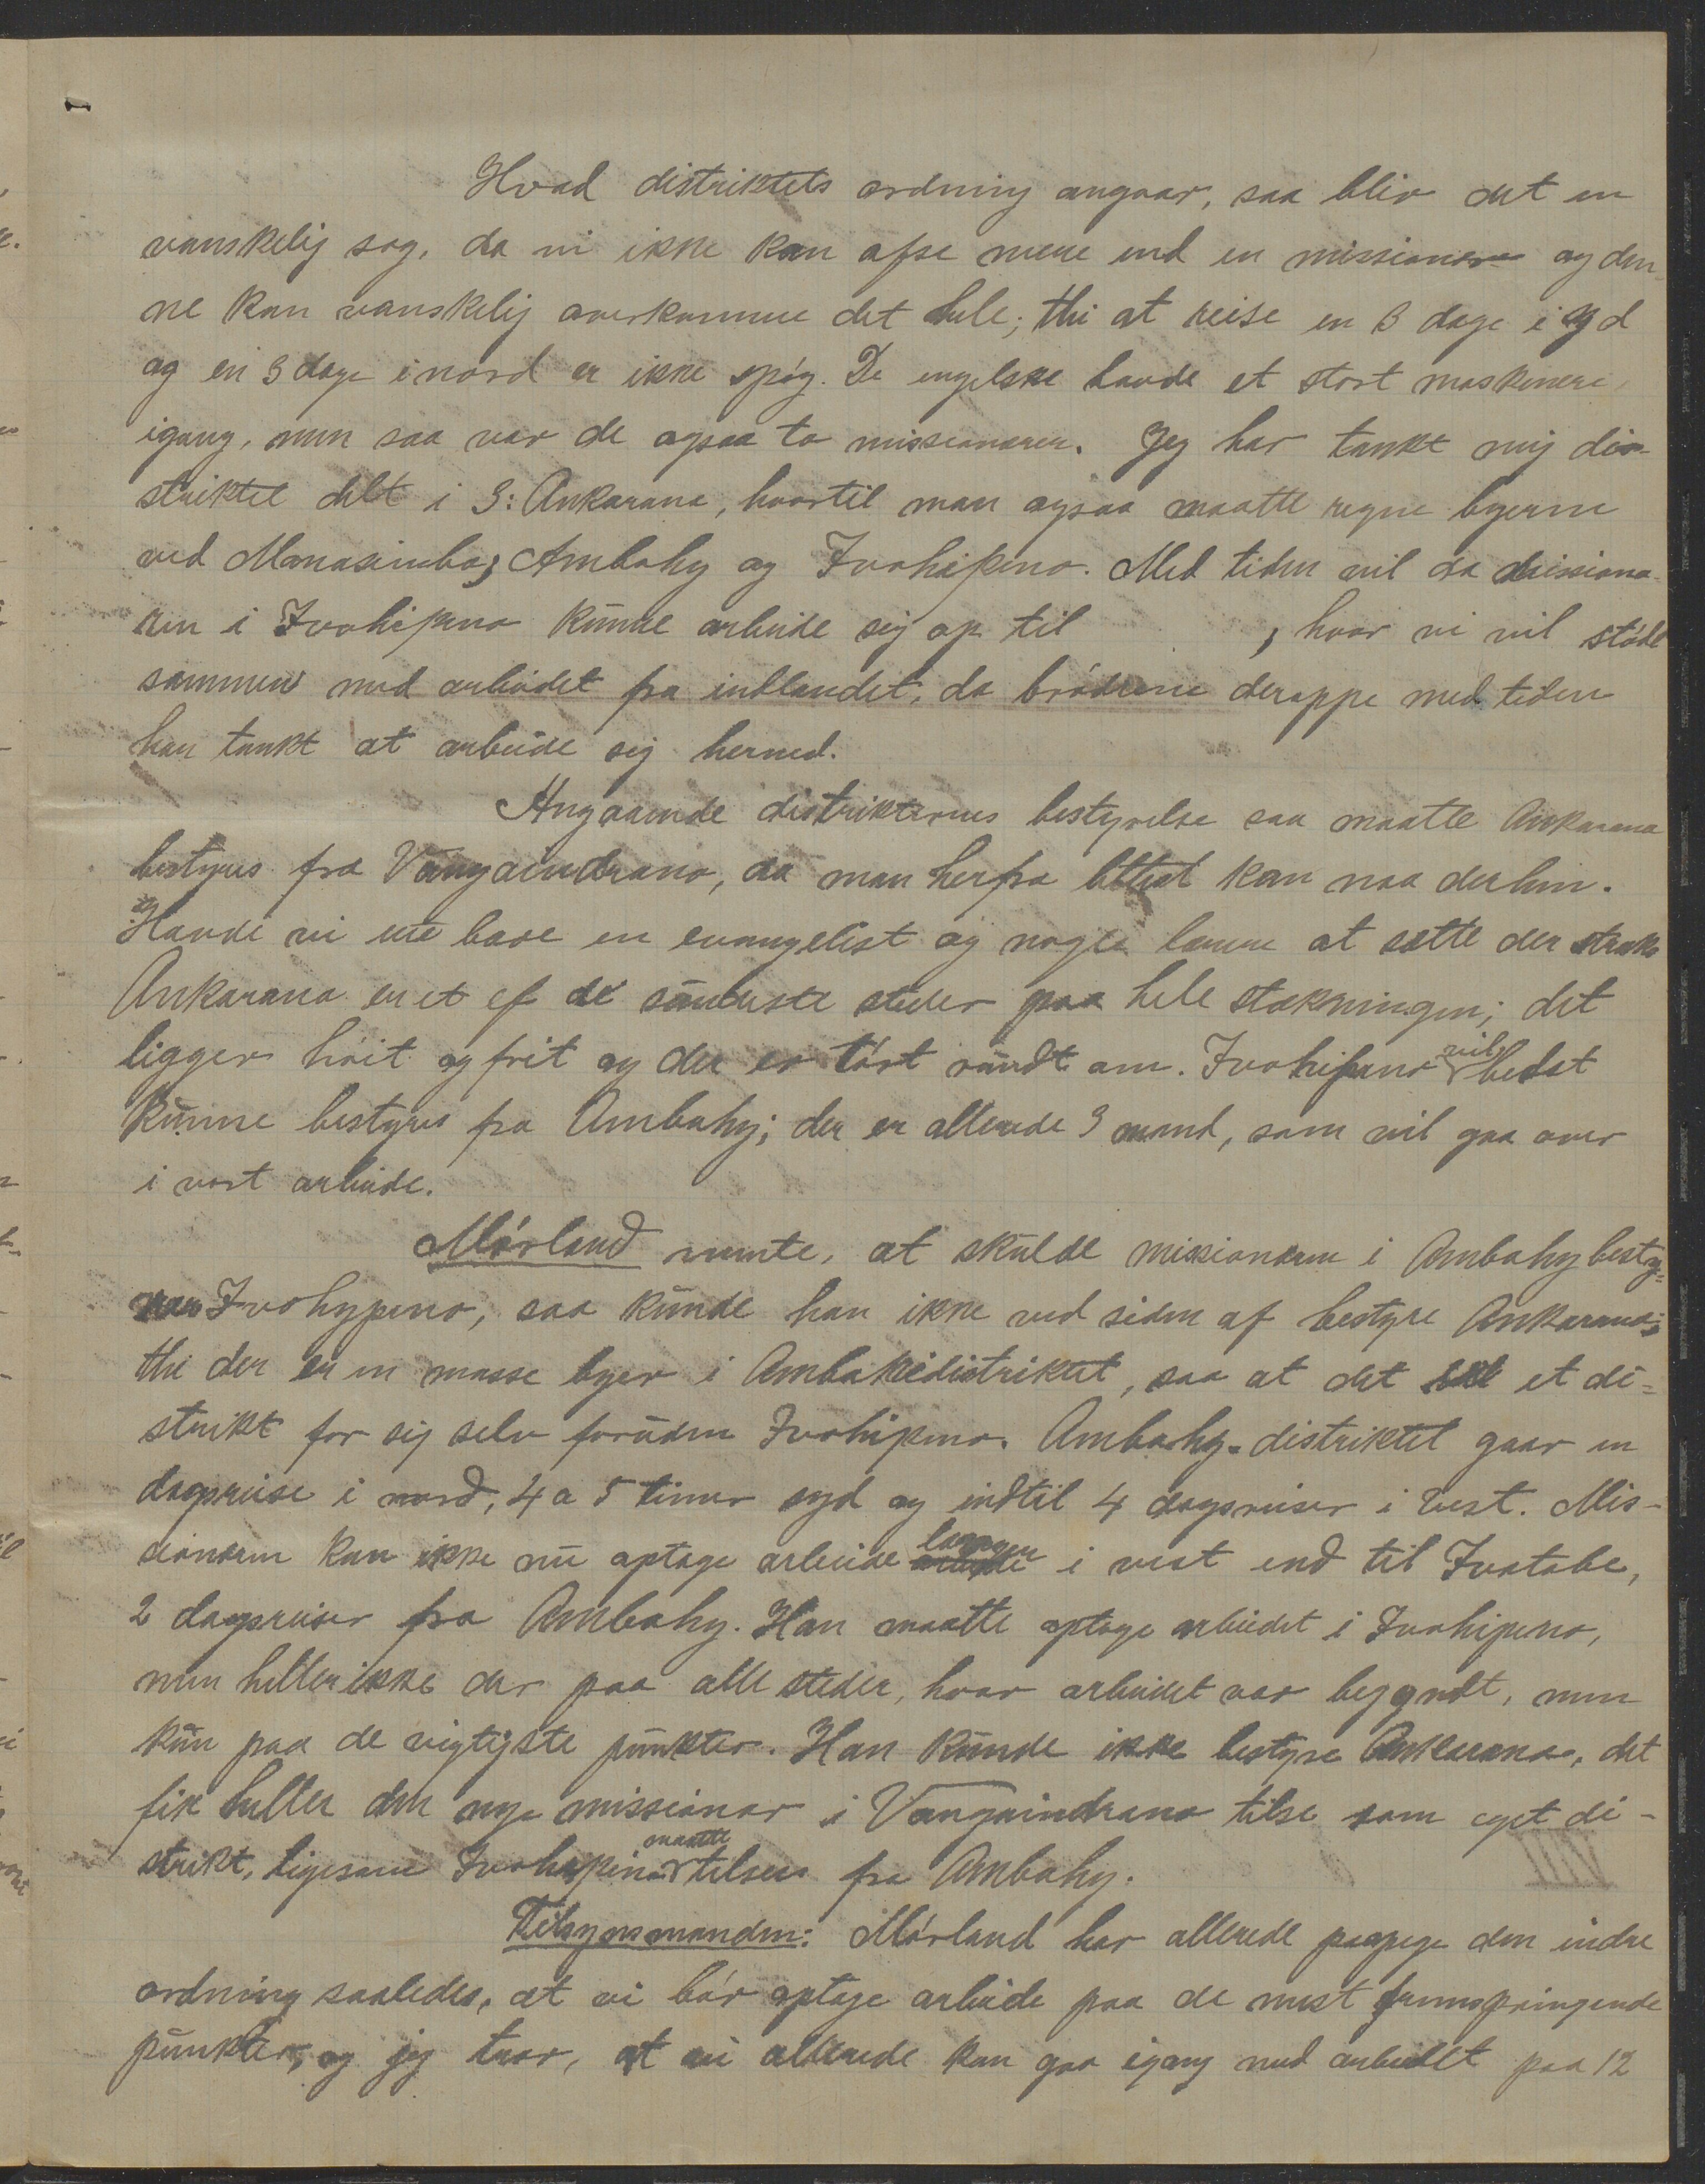 Hvad distriktets ordning angaar, saa blir det en
vanskelig sag, da vi ikke kan afse mere end en missionær og den
ne kan vanskelig overkomme det hele; thi at reise en 3 dage i syd
og en 3 dage i nord er ikke spøg. De engelske havde et stort maskineri
igang, men saa var de ogsaa to missionærer. Jeg har tænkt mig di-
striktet delt i 3: Ankarana, hvortil man ogsaa maatte regne byerne
ved Manasimba; Ambahy og Ivohipeno. Med tiden vil da missionæ-
ren i Ivohipeno kunne arbeide sig op til , hvor vi vil støde
sammen med arbeidet fra indlandet, da brødrene deroppe med tiden
har tænkt at arbeide sig herned.
Angaaende distrikternes bestyrelse saa maatte Ankarana
bestyres fra Vangaindrano, da man herfra lettest kan naa derhen.
Havde vi nu bare en evangelist og nogle lærere at sætte der straks
Ankarana er et af de sundeste steder paa hele strækningen; det
ligger høit og frit og der er tørt rundt om. Ivohipeno vil bedst
kunne bestyres fra Ambahy; der er allerede 3 mand, som vil gaa over
i vort arbeide.
Mørland mente, at skulde missionæren i Ambahy besty=
re Ivohypeno, saa kunde han ikke ved siden af bestyre Ankarana;
thi der er en masse byer i Ambahedistriktet, saa at det et di=
strikt for sig selv foruden Ivohipeno. Ambahy-distriktet gaar en
dagsreise i nord, 4 a 5 timer syd og indtil 4 dagsreiser i vest. Mis-
sionæren kan ikke nu optage arbeide længer i vest end til Ivatabe,
2 dagsreiser fra Ambahy. Han maatte optage arbeidet i Ivohipeno,
men heller ikke der paa alle steder, hvor arbeidet var begyndt, men
kun paa de vigtigste punkter. Han kunde ikke bestyre Ankarana, det
fik heller den nye missionær i Vangaindrano tilse som eget di-
strikt, ligesom Ivohipeno maatte tilsees fra Ambahy.
Tilsynsmanden: Mørland har allerede paapege den indre
ordning saaledes, at vi bør optage arbeide paa de mest fremspringende
punkter, og jeg tror, at vi allerede kan gaa igang med arbeidet paa 12